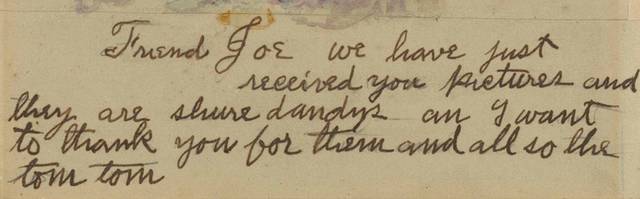 Friend Joe we have just
received you pictures and
they are shure dandys an I want
to thank you for them and all so the
tom tom